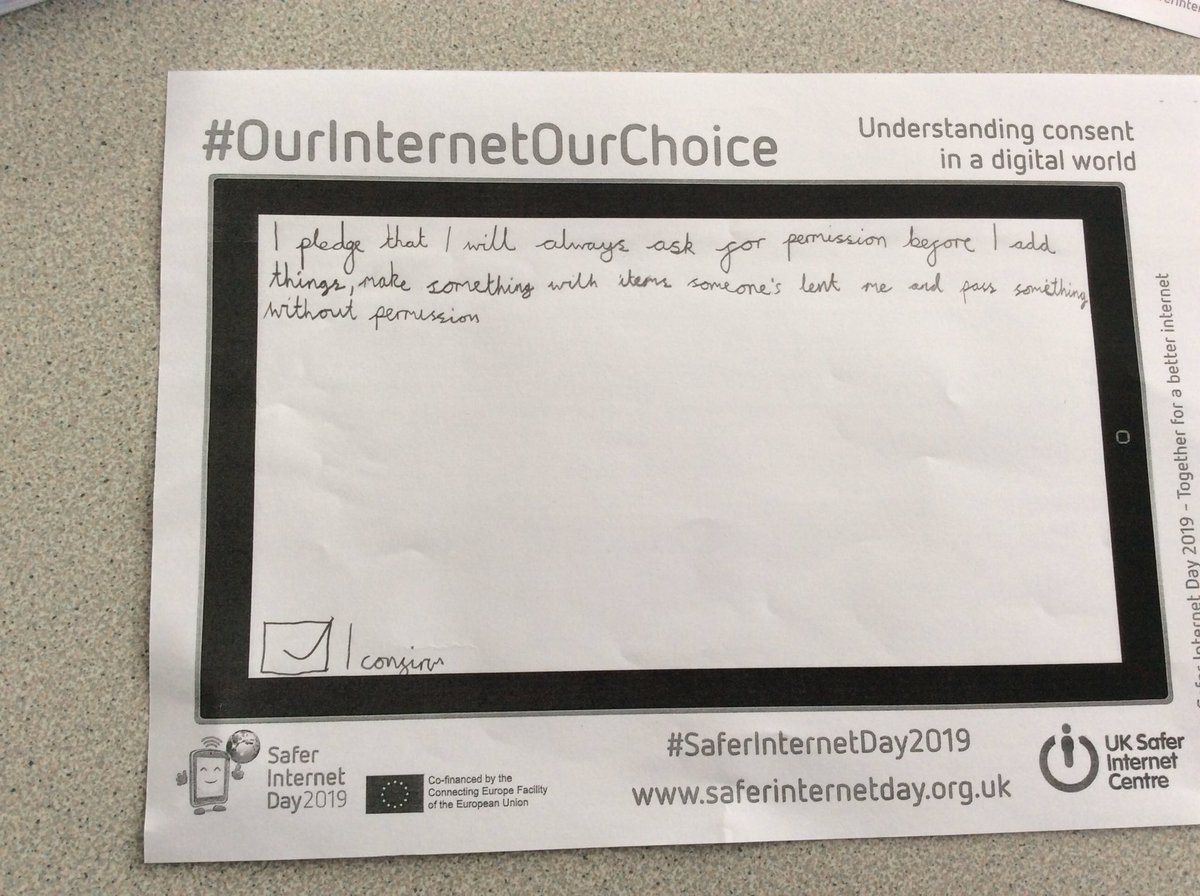 #OurInternetOurChoice
Understanding consent
in a digital world
I pledge that I will always ask for permission before I add
things, make something with items someone's lent me and pass something
without permission
I confirm
Safer
Internet
Day2019
Co-financed by the
Connecting Europe Facility
of the European Union
#SaferInternetDay2019
www.saferinternetday.org.uk
UK Safer
Internet
Centre
Safer Internet Day 2019 - Together for a better internet